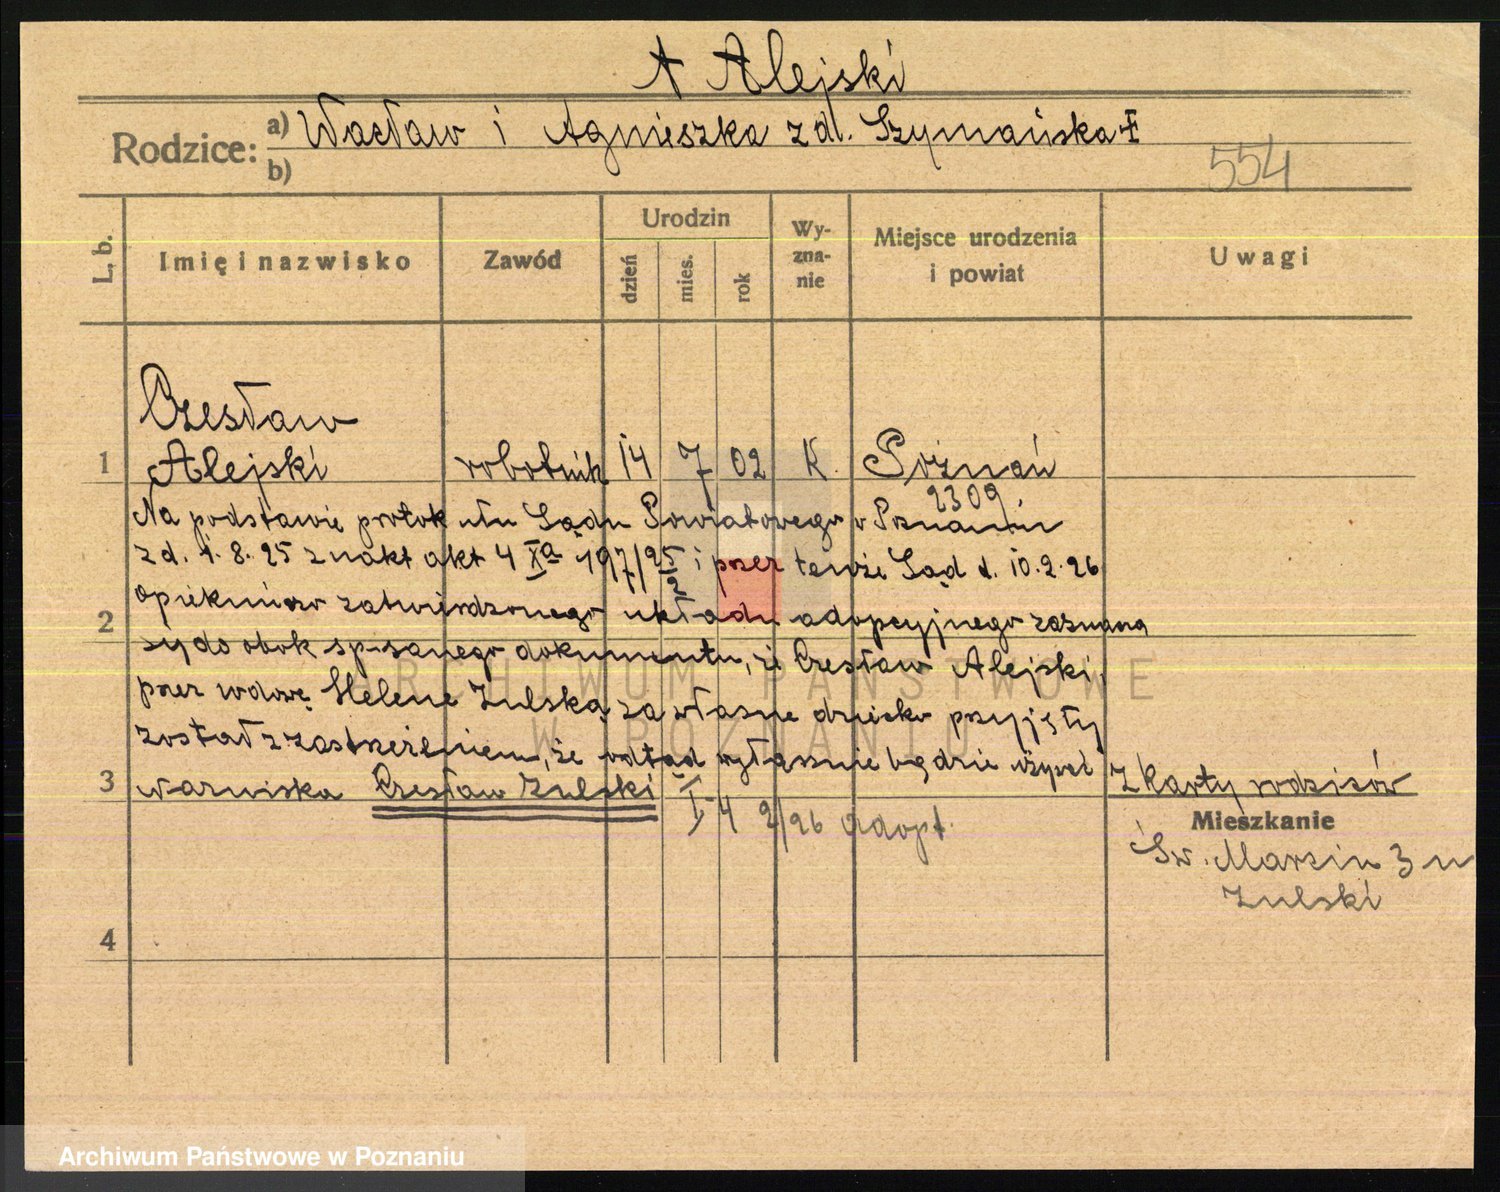 A Alejski
Rodzice: a) Wacław i Agnieszka z d. Szymańska
b)
554
L. b.
Imię i nazwisko
Zawód
Urodzin
dzień
mies.
rok
Wy-
zna-
nie
Miejsce urodzenia
i powiat
Uwagi
Czesław
1 Alejski robotnik 14 7 02 K. Poznań
2309
Na podstawie protokułu Sądu Powiatowego w Poznaniu
z d. 1. 8. 25 znakt akt 4 Xa 197/25 i przez tenże Sąd d. 10. 2. 26
2
opiekuńczo zatwierdzonego układu adopcyjnego zeznana
sydo obok spisanego dokumentu, że Czesław Alejski,
przez wdowę Helenę Zulską za własne dziecko przyjęty
został z zastrzeżeniem, że odtąd wyłącznie będzie używać
3 nazwiska Czesław Zulski I-4 2/26 adopt.
Z karty rodziców
Mieszkanie
Św. Marcin 3
Zulski
4
ARCHIWUM PAŃSTWOWE
W POZNANIU
Archiwum Państwowe w Poznaniu